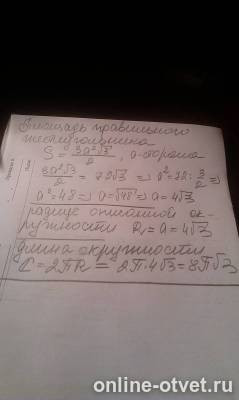 Площадь правильного
шестиугольника
S = 3a²√3/2, a-сторона
3a²√3/2 = 72√3 => a² = 72 : 3/2 =>
a² = 48 => a = √48 => a = 4√3
радиус описанной ок-
ружности R = a = 4√3
длина окружности
C = 2πR = 2π·4√3 = 8π√3
online-otvet.ru